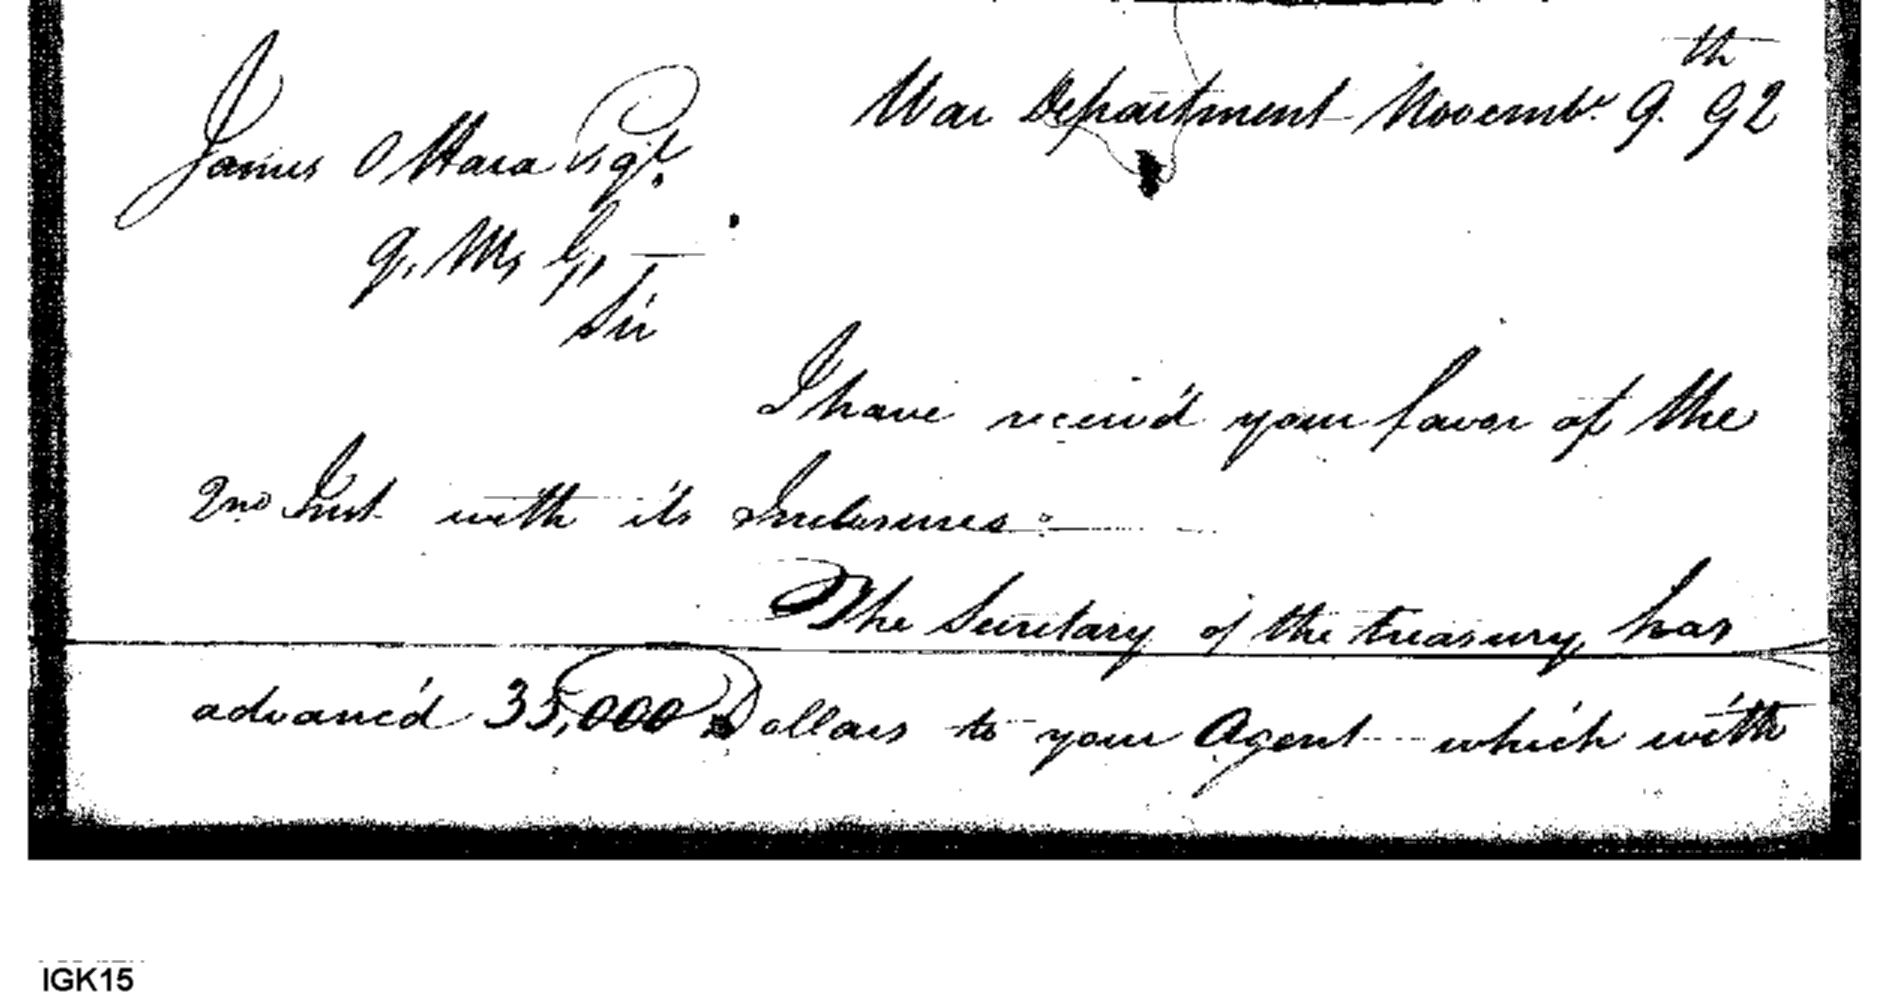 War Department Novemb.r 9.th 92
James O Hara Esqr.
Q. M. G.
Sir
I have receiv'd your favor of the
2nd Inst with its Inclosures.
The Secretary of the treasury has
advanc'd 35,000 Dollars to your Agent which with
IGK15